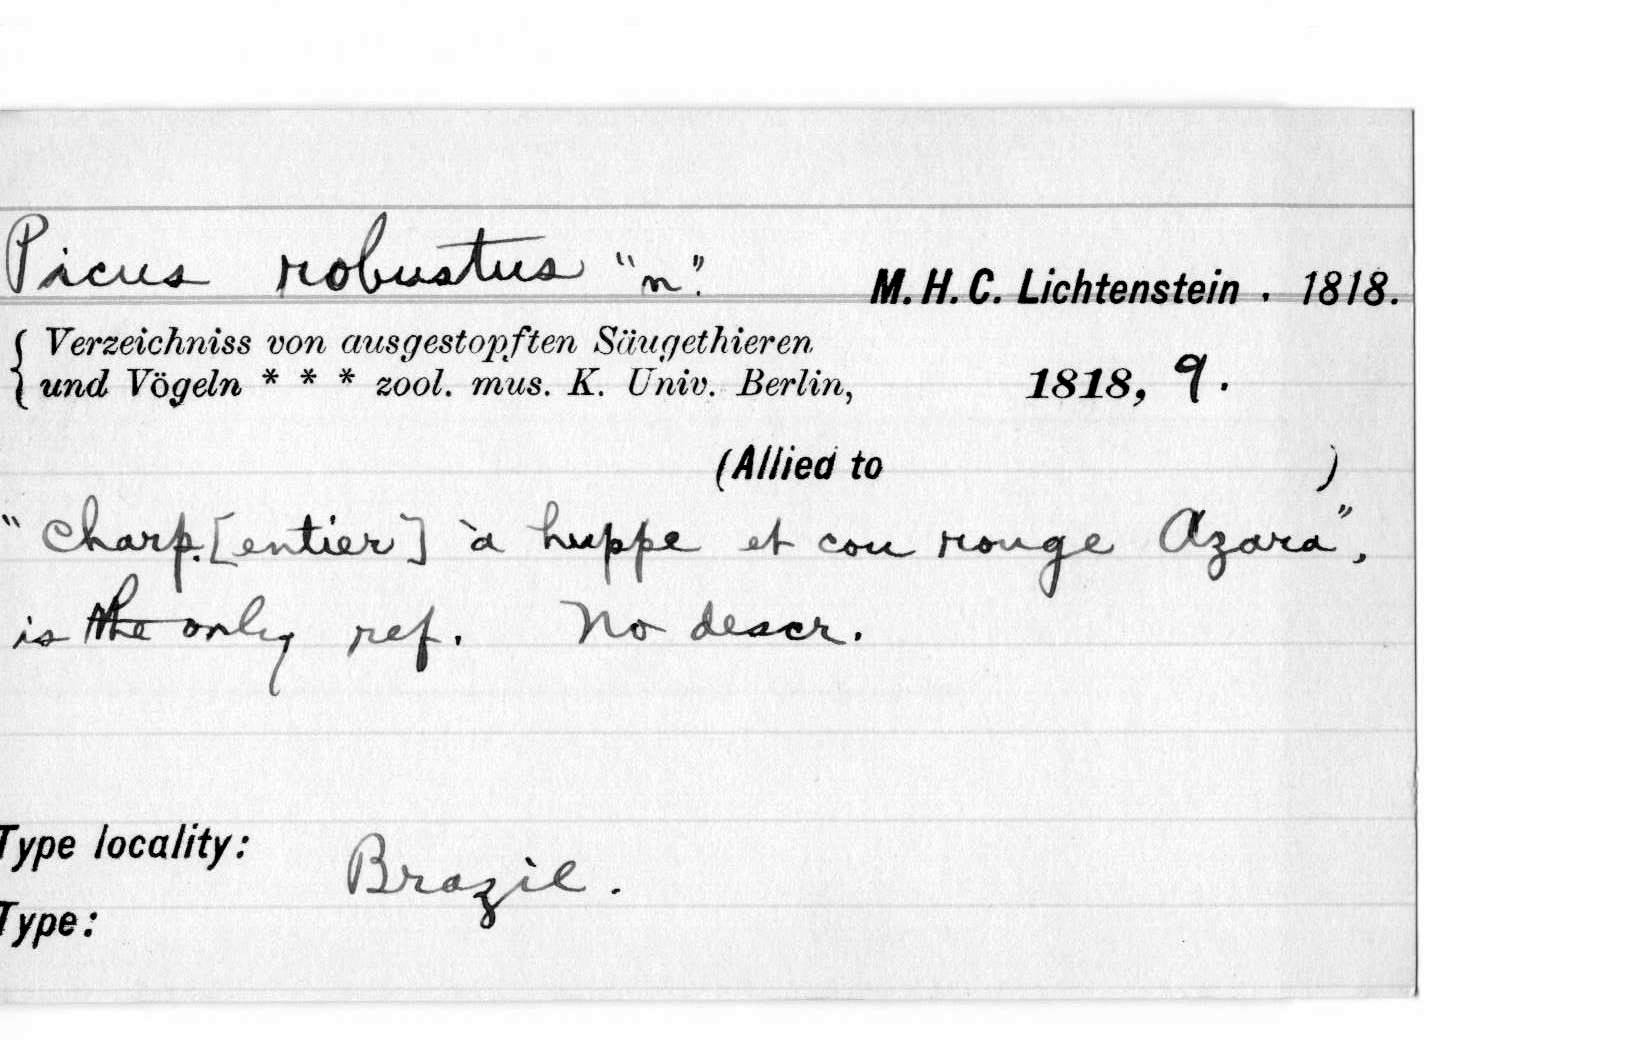 Picus robustus "n". M. H. C. Lichtenstein . 1818.
{ Verzeichniss von ausgestopften Säugethieren
und Vögeln * * * zool. mus. K. Univ. Berlin, 1818, 9.
(Allied to )
"Charp.[entier] à huppe et cou rouge Azara",
is the only ref. No descr.
Type locality: Brazil.
Type: